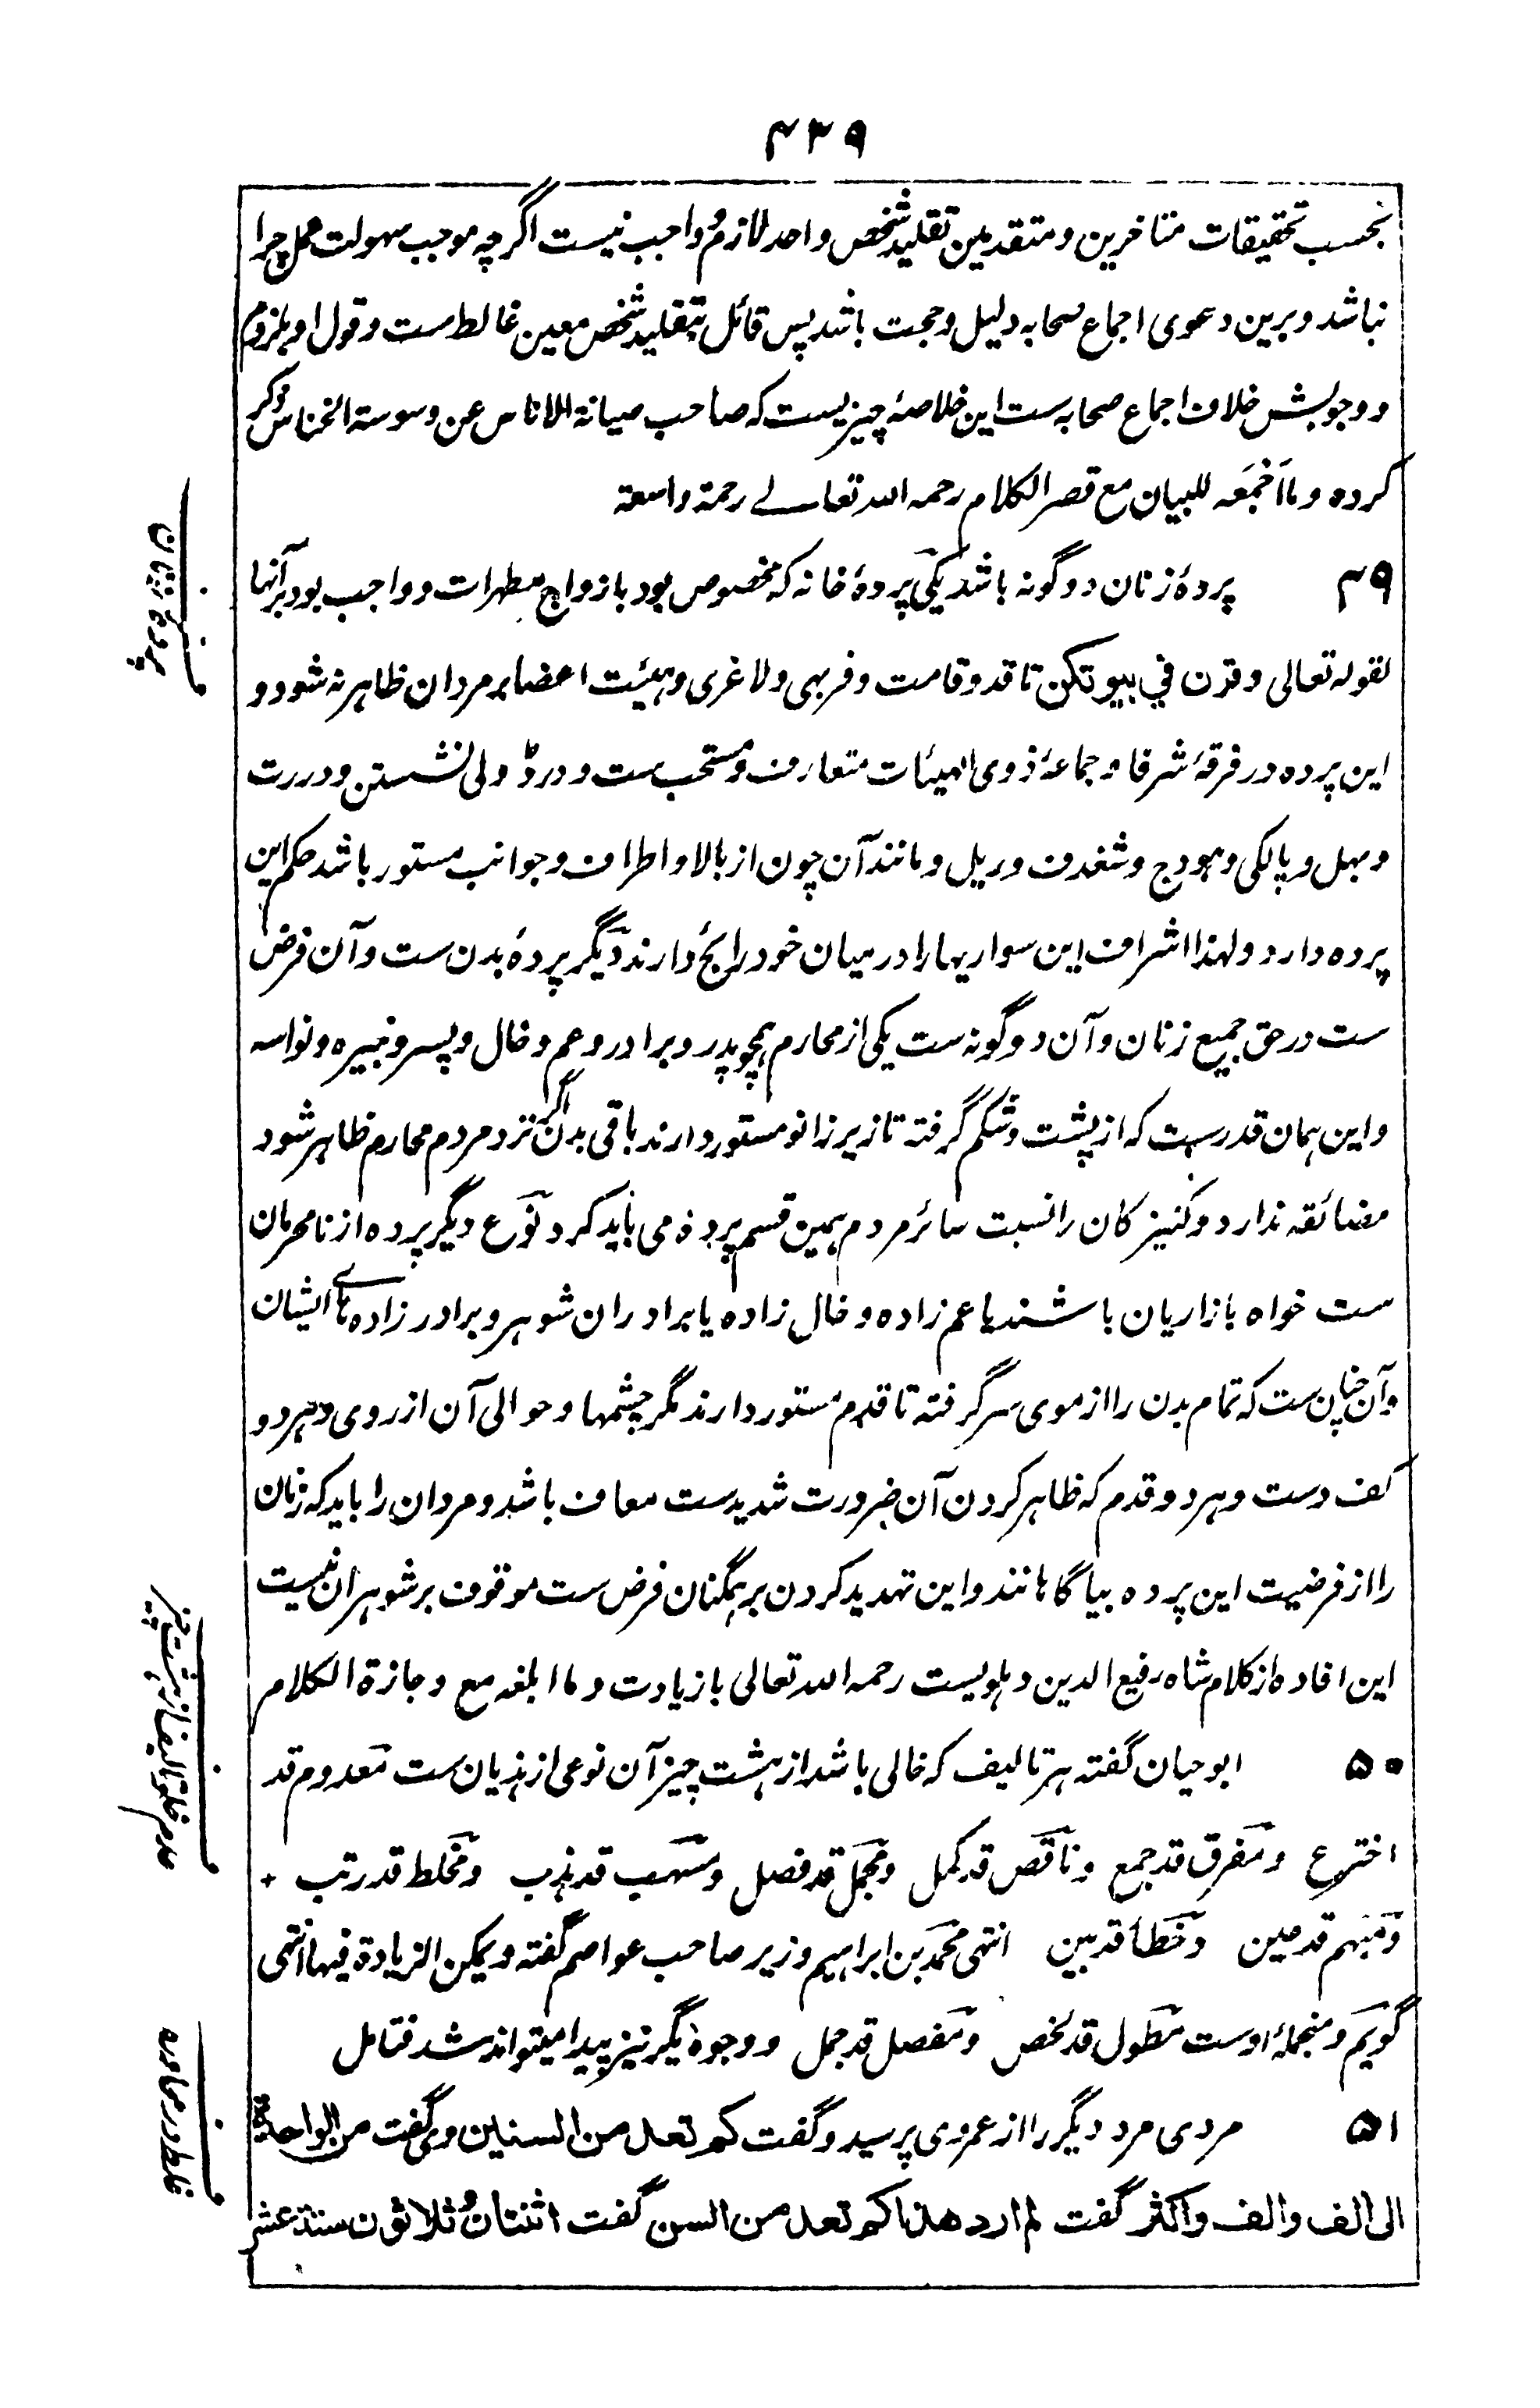 ۴۳۹
بحسب تحقیقات متاخرین و متقدمین تقلید شخص واحد لازم و واجب نیست اگرچه موجب سهولت عمل چرا
نباشد و برین دعوی اجماع صحابه دلیل و حجت باشد پس قائل بتقلید شخص معین غالط ست و قول او بلزوم
و وجوبش خلاف اجماع صحابه ست این خلاصهٔ چیزیست که صاحب صیانة الاناس عن وسوسة الخناس ذکر
کرده و ما اجمعه للبیان مع قصر الکلام رحمه الله تعالے رحمة واسعة
۴۹ پردهٔ زنان دو گونه باشد یکی پردهٔ خانه که مخصوص بود بازواج مطهرات و واجب بود بر آنها
لقوله تعالی وقرن في بیوتکن تا قد و قامت و فربهی و لاغری و هیئت اعضا بر مردان ظاهر نه شود و
این پرده در فرقهٔ شرفا و جماعهٔ ذوی الهیئات متعارف و مستحب ست و در ڈولی نشستن و در رت
و بهل و پالکی و هودج و شغدف و ریل و مانند آن چون از بالا و اطراف و جوانب مستور باشد حکم این
پرده دارد و لهذا اشراف این سواریها را در میان خود رائج دارند دیگر پردهٔ بدن ست و آن فرض
ست در حق جمیع زنان و آن دو گونه ست یکی از محارم همچو پدر و برادر و عم و خال و پسر و نبیره و نواسه
و این همان قدرست که از پشت و شکم گرفته تا زیر زانو مستور دارند باقی بدن اگر نزد مردم محارم ظاهر شود
مضائقه ندارد و کنیزکان را نسبت سائر مردم همین قسم پرده می باید کرد نوع دیگر پرده از نامحرمان
ست خواه بازاریان باشند یا عم زاده و خال زاده یا برادران شوهر و برادرزاده هاے ایشان
و آن چنان ست که تمام بدن را از موی سر گرفته تا قدم مستور دارند مگر چشمها و حوالی آن از روی و هر دو
کف دست و هر دو قدم که ظاهر کردن آن ضرورت شدیدست معاف باشد و مردان را باید که زنان
را از فرضیت این پرده بیاگاهانند و این تهدید کردن بر همگنان فرض ست موقوف بر شوهران نیست
این افاده از کلام شاه رفیع الدین دهلویست رحمه الله تعالی با زیادت و ما ابلغه مع وجازة الکلام
۵۰ ابو حیان گفته هر تالیف که خالی باشد از هشت چیز آن نوعی از هذیان ست معدوم قد
اخترع و مفرق قد جمع و ناقص قد کمل و مجمل قد فصل و مسهب قد هذب و مخلط قد رتب
و مبهم قد عین و خطأ قد بین انتهی محمد بن ابراهیم وزیر صاحب عواصم گفته و یمکن الزیادة فیها انتهی
گویم و منجملهٔ اوست مطول قد لخص و مفصل قد جمل و وجوه دیگر نیز پیدا میتواند شد فتامل
۵۱ مردی مرد دیگر را از عمر وی پرسید و گفت کم تعد من السنین وی گفت من الواحدة
الی الف والف واکثر گفت لم ارد هذا کم تعد من السن گفت اثنتان و ثلاثون سنة عشر
ف پردهٔ زنان